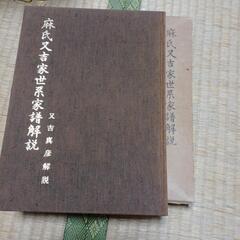 麻氏又吉家世系家譜解説
又吉真彦解説
麻氏又吉家世系家譜解説